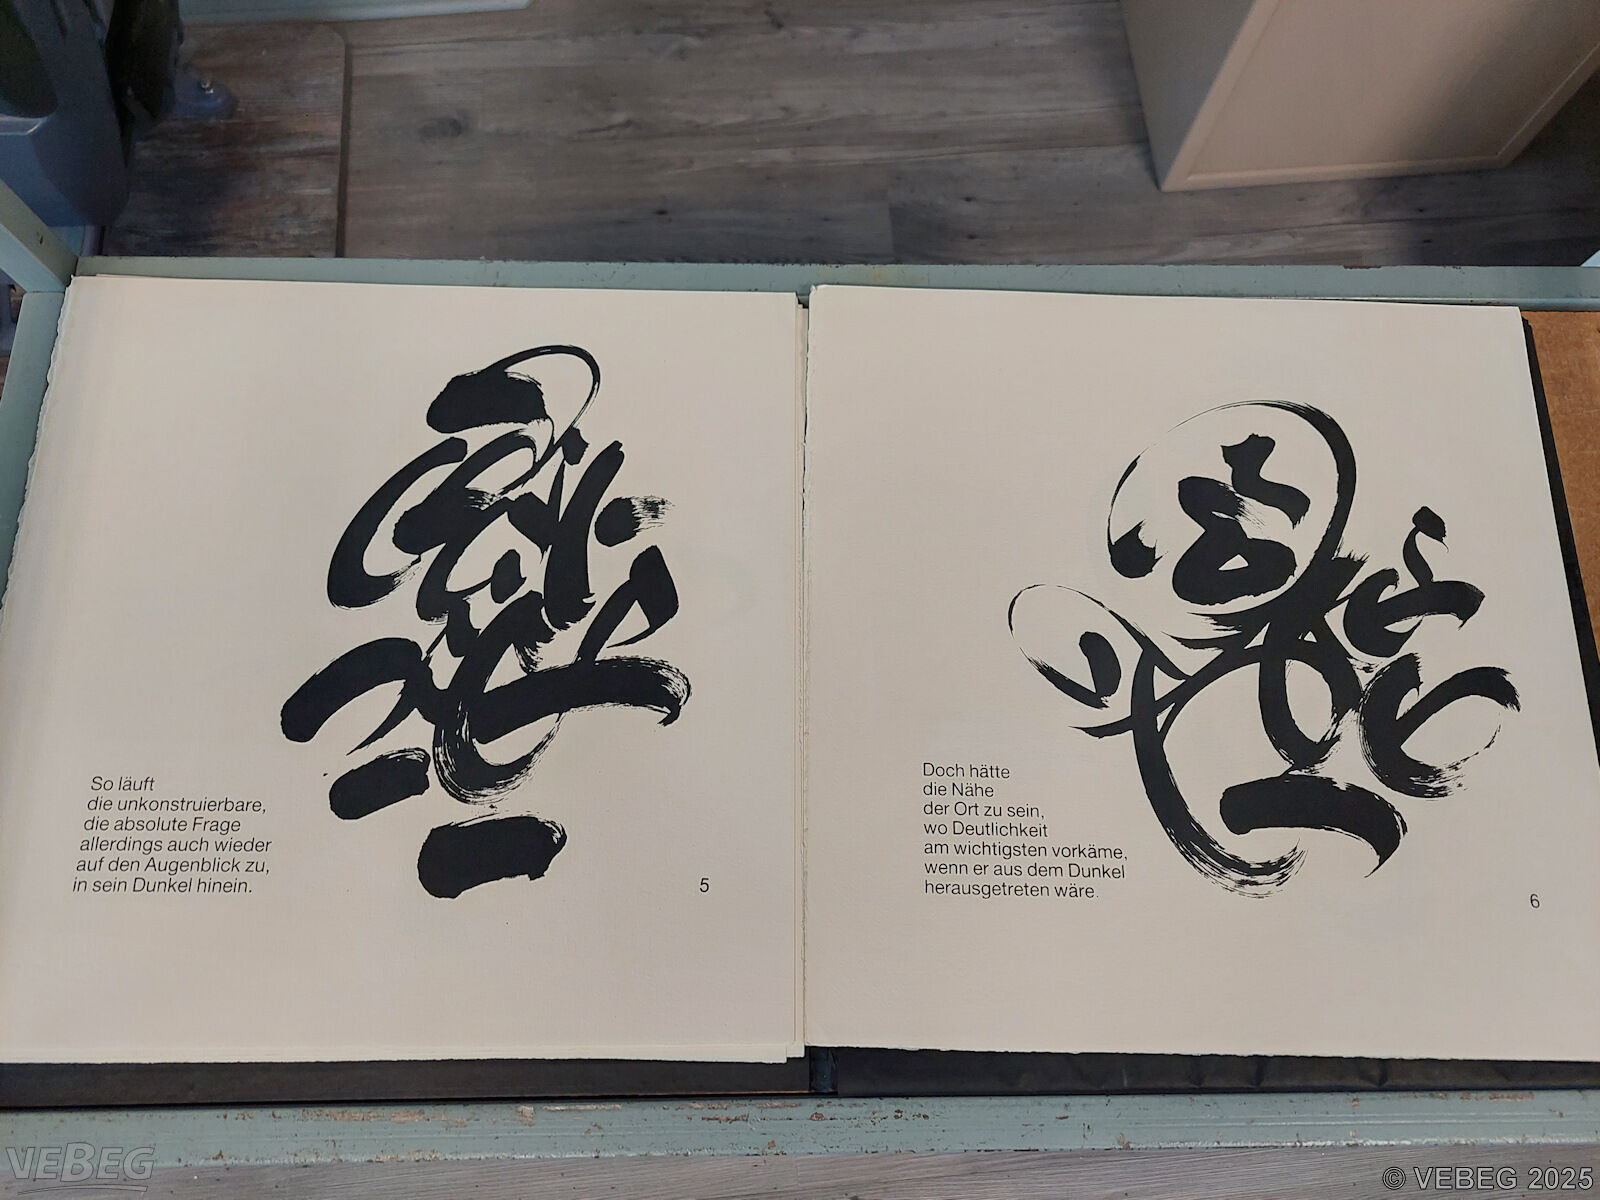 So läuft
die unkonstruierbare,
die absolute Frage
allerdings auch wieder
auf den Augenblick zu,
in sein Dunkel hinein.
5
Doch hätte
die Nähe
der Ort zu sein,
wo Deutlichkeit
am wichtigsten vorkäme,
wenn er aus dem Dunkel
herausgetreten wäre.
6
VEBEG
© VEBEG 2025